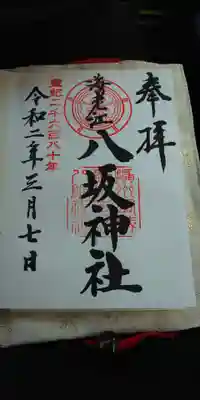 奉拝
海老江
八坂神社
皇紀二千六百八十年
令和二年三月七日